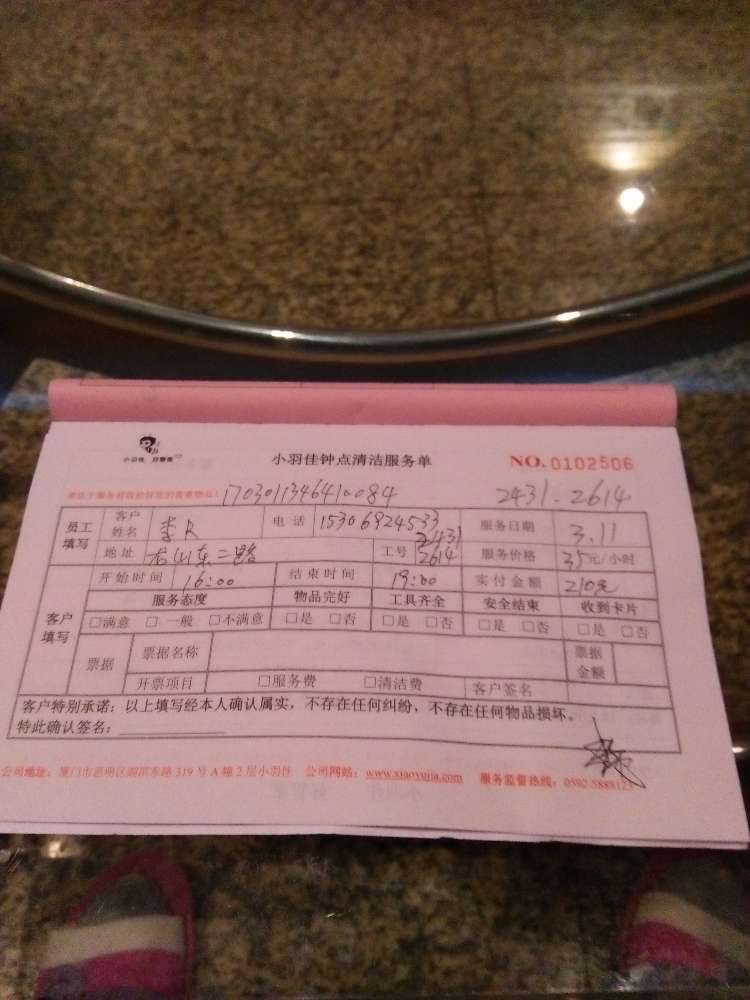 小羽佳 好管家
小羽佳钟点清洁服务单
NO.0102506
1703011346410084
2431.2614
员工填写
客户姓名 李R 电话 15306924533 服务日期 3.11
地址 东二路 工号 2431 2614 服务价格 35元/小时
开始时间 16:00 结束时间 19:00 实付金额 210元
客户填写
服务态度 物品完好 工具齐全 安全结束 收到卡片
□满意 □一般 □不满意 □是 □否 □是 □否 □是 □否 □是 □否
票据 票据名称 票据金额
开票项目 □服务费 □清洁费 客户签名
客户特别承诺：以上填写经本人确认属实，不存在任何纠纷，不存在任何物品损坏。
特此确认签名：
公司地址：厦门市思明区湖滨东路319号A幢2层小羽佳 公司网站：www.xiaoyujia.com 服务监督热线：0592-5888123